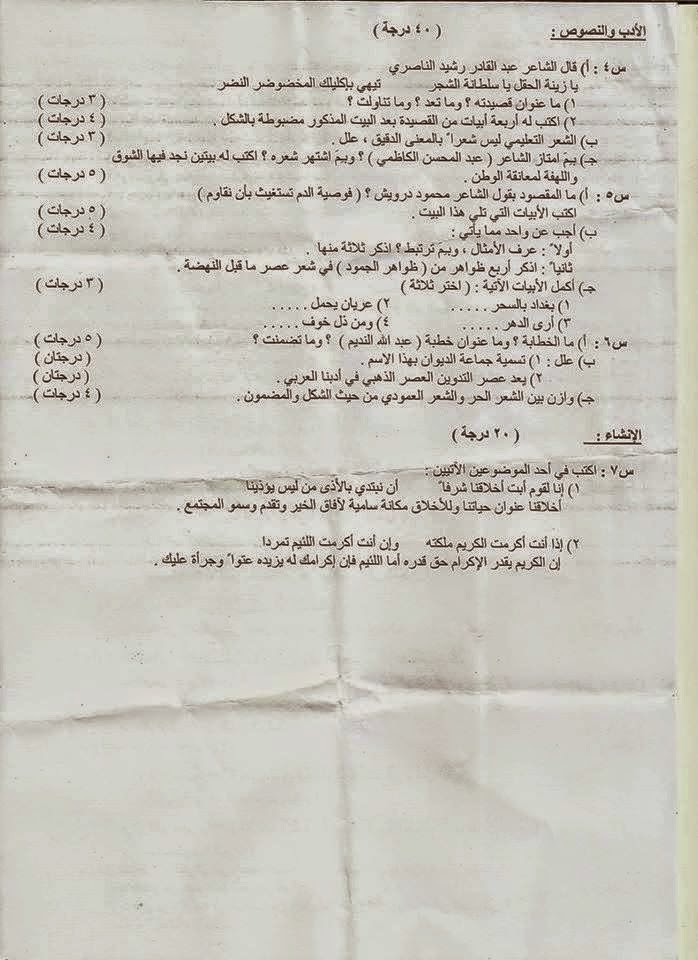 الأدب والنصوص : ( ٤٠ درجة )
س٤ : أ) قال الشاعر عبد القادر رشيد الناصري
يا زينة الحقل يا سلطانة الشجر تيهي بإكليلك المخضوضر النضر
١) ما عنوان قصيدته ؟ وما تعد ؟ وما تناولت ؟ ( ٣ درجات )
٢) اكتب له أربعة أبيات من القصيدة بعد البيت المذكور مضبوطة بالشكل . ( ٤ درجات )
ب) الشعر التعليمي ليس شعراً بالمعنى الدقيق ، علل . ( ٣ درجات )
جـ) بمَ امتاز الشاعر ( عبد المحسن الكاظمي ) ؟ وبمَ اشتهر شعره ؟ اكتب له بيتين نجد فيها الشوق
واللهفة لمعانقة الوطن . ( ٥ درجات )
س٥ : أ) ما المقصود بقول الشاعر محمود درويش ؟ ( فوصية الدم تستغيث بأن نقاوم )
اكتب الأبيات التي تلي هذا البيت . ( ٥ درجات )
ب) أجب عن واحد مما يأتي : ( ٤ درجات )
أولاً : عرف الأمثال ، وبمَ ترتبط ؟ اذكر ثلاثة منها .
ثانياً : اذكر أربع ظواهر من ( ظواهر الجمود ) في شعر عصر ما قبل النهضة .
جـ) أكمل الأبيات الآتية : ( اختر ثلاثة ) ( ٣ درجات )
١) بغداد بالسحر ..... ٢) عريان يحمل .....
٣) أرى الدهر ..... ٤) ومن ذل خوف .....
س٦ : أ) ما الخطابة ؟ وما عنوان خطبة ( عبد الله النديم ) ؟ وما تضمنت ؟ ( ٥ درجات )
ب) علل : ١) تسمية جماعة الديوان بهذا الاسم . ( درجتان )
٢) يعد عصر التدوين العصر الذهبي في أدبنا العربي . ( درجتان )
جـ) وازن بين الشعر الحر والشعر العمودي من حيث الشكل والمضمون . ( ٤ درجات )
الإنشاء : ( ٢٠ درجة )
س٧ : اكتب في أحد الموضوعين الآتيين :
١) إنا لقوم أبت أخلاقنا شرفاً أن نبتدي بالأذى من ليس يؤذينا
أخلاقنا عنوان حياتنا وللأخلاق مكانة سامية لآفاق الخير وتقدم وسمو المجتمع .
٢) إذا أنت أكرمت الكريم ملكته وإن أنت أكرمت اللئيم تمردا
إن الكريم يقدر الإكرام حق قدره أما اللئيم فإن إكرامك له يزيده عتواً وجرأة عليك .